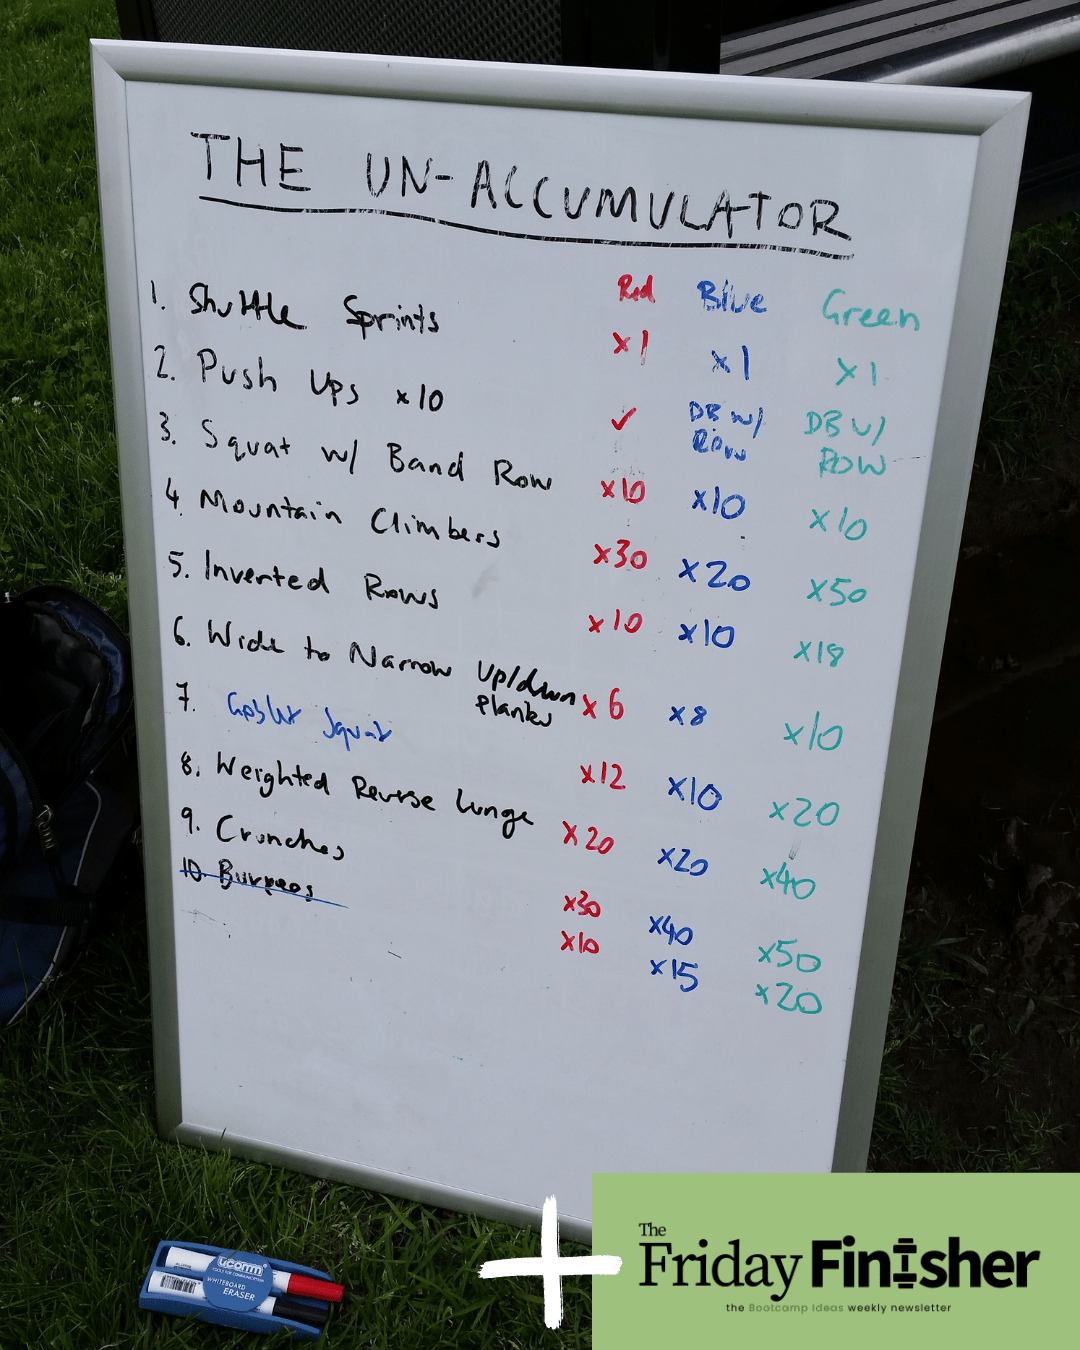 THE UN-ACCUMULATOR
Red Blue Green
1. Shuttle Sprints x1 x1 x1
2. Push Ups x10 ✓ DB w/ Row DB w/ ROW
3. Squat w/ Band Row x10 x10 x10
4. Mountain Climbers x30 x20 x50
5. Inverted Rows x10 x10 x18
6. Wide to Narrow Up/down planks x6 x8 x10
7. Goblet Squat x12 x10 x20
8. Weighted Reverse Lunge x20 x20 x40
9. Crunches x30 x40 x50
10. Burpees x10 x15 x20
ucomm
WHITEBOARD
ERASER
The
Friday Finisher
the Bootcamp Ideas weekly newsletter